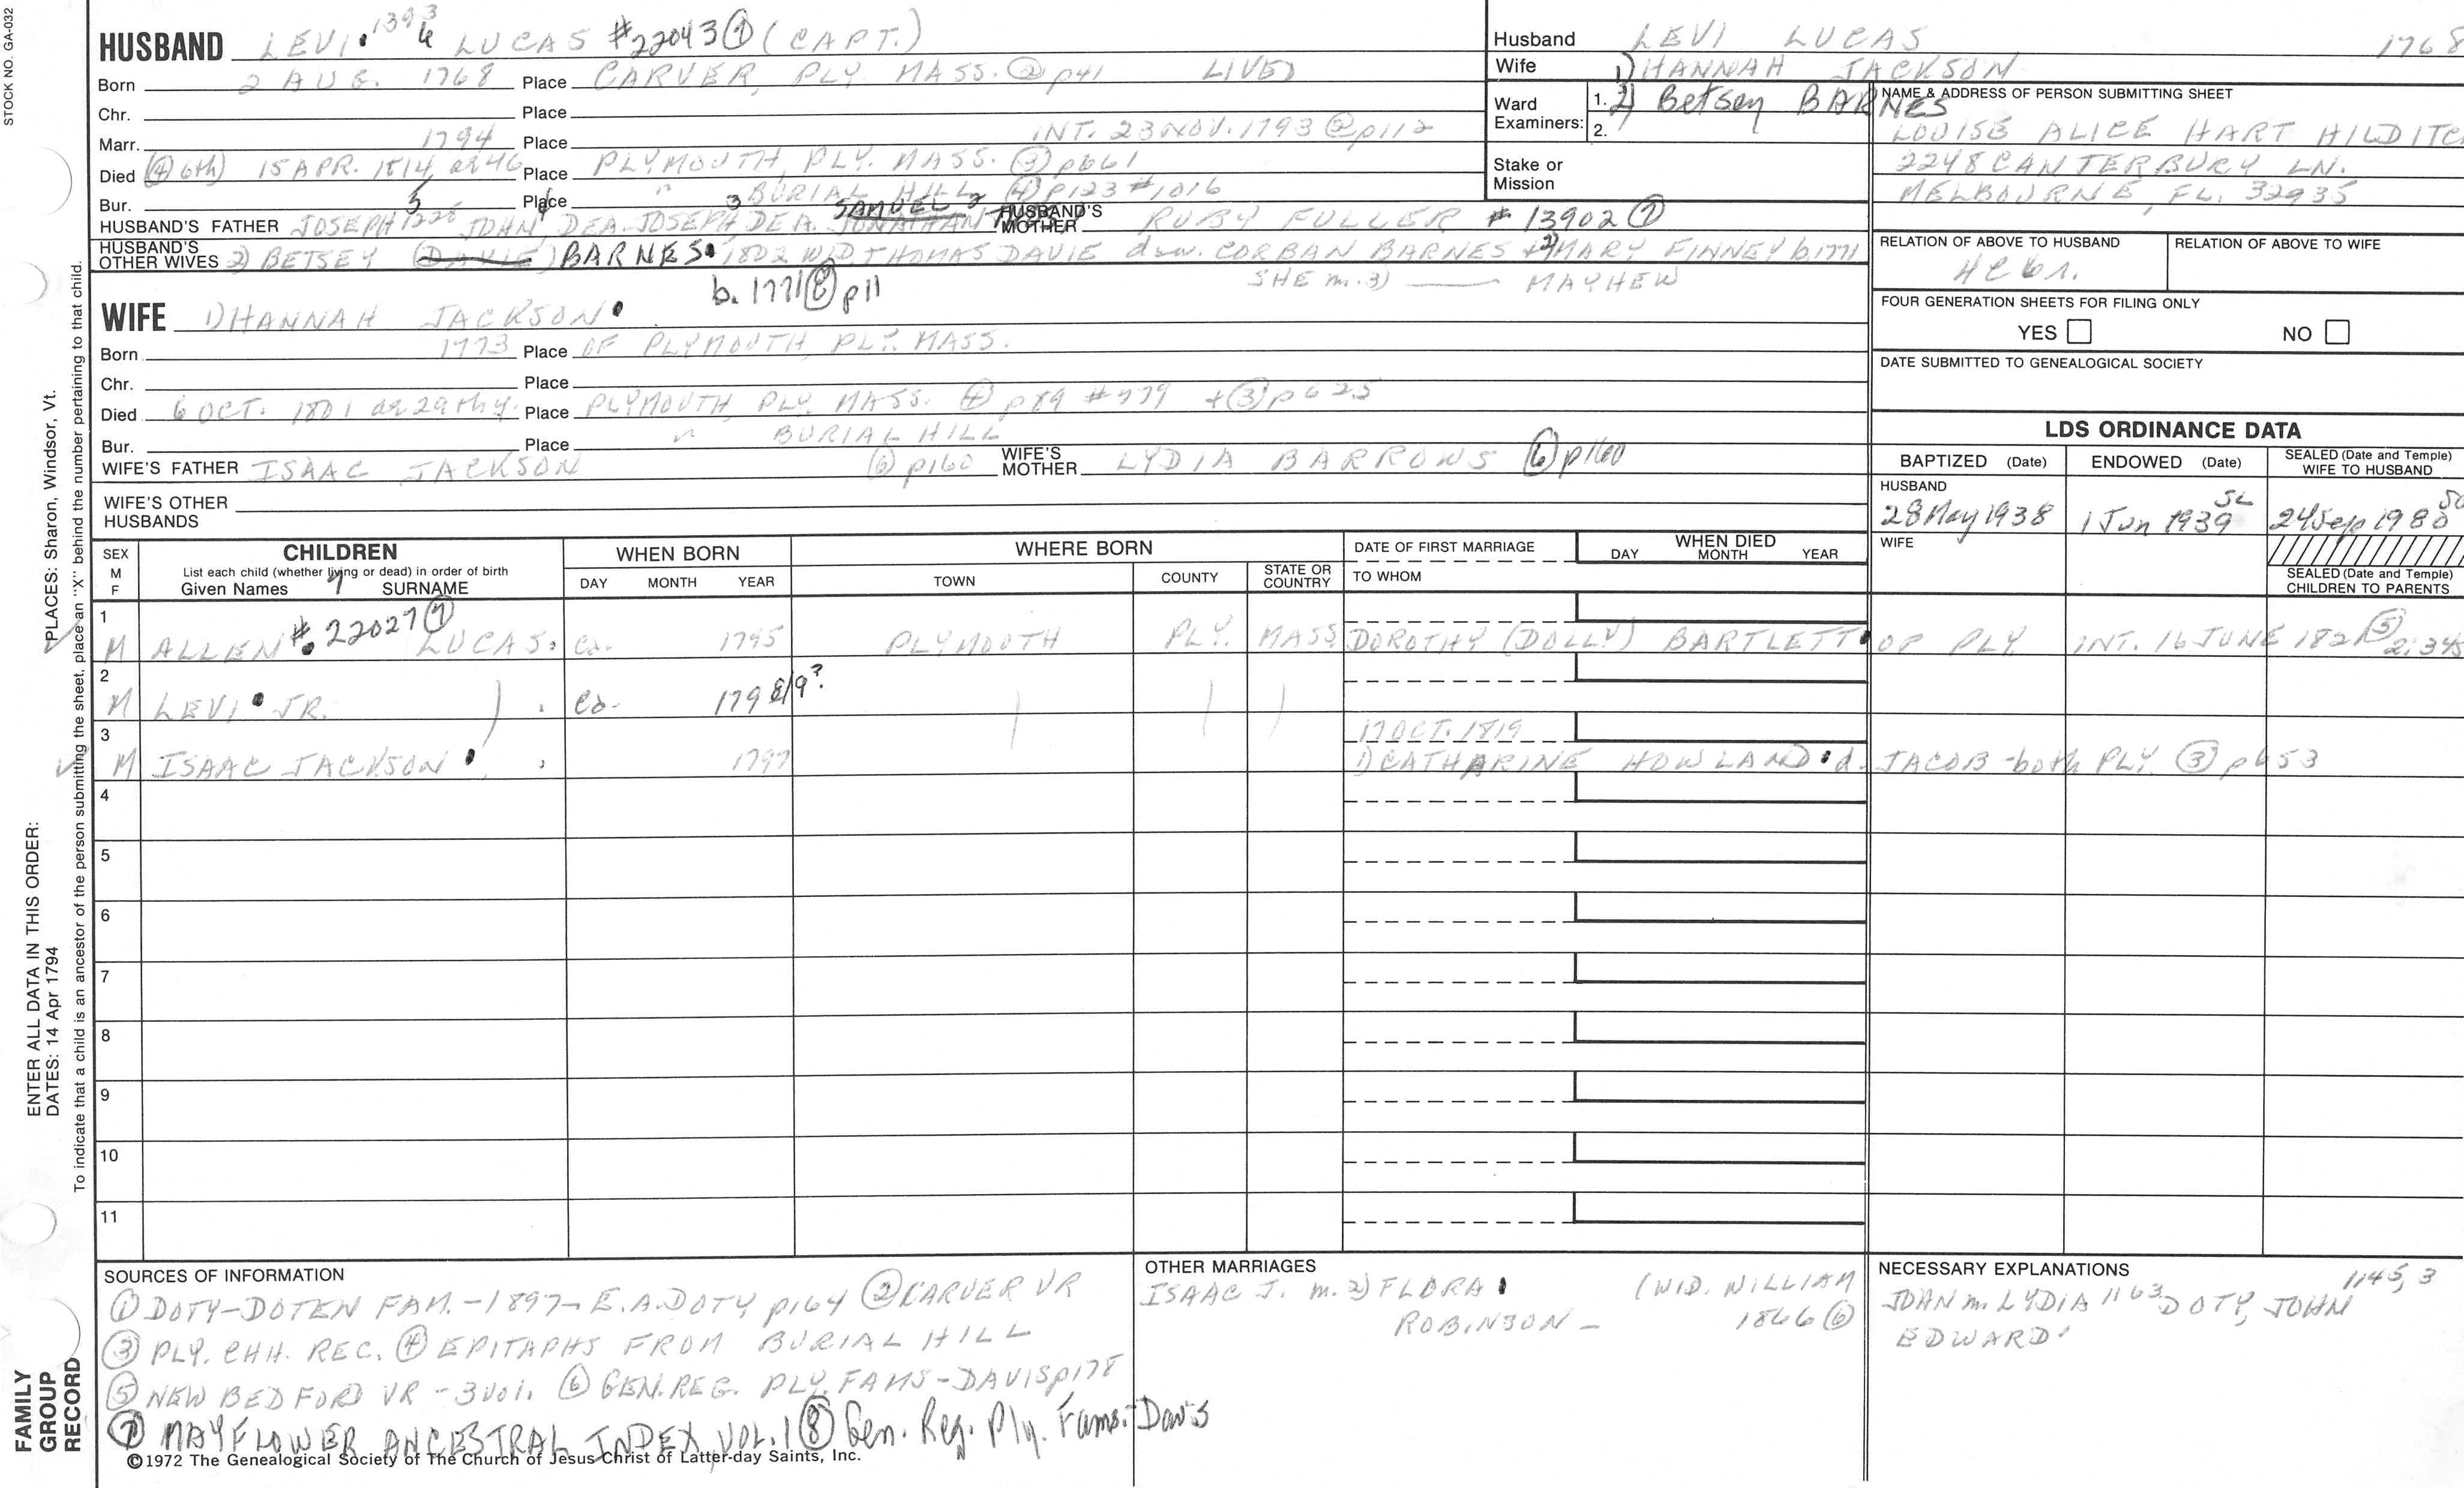 STOCK NO. GA-032
HUSBAND LEVI 1393 6 LUCAS #22043 ⑦ (CAPT.)
Born 2 AUG. 1768 Place CARVER, PLY. MASS. ② p41 LIVED
Chr. Place
Marr. 1794 Place INT. 23 NOV. 1793 ② p112
Died (④ 6th) 15 APR. 1814 ae 46 Place PLYMOUTH, PLY. MASS. ③ p661
Bur. Place " BURIAL HILL ④ p123 #1016
5 4 3 SAMUEL 2
HUSBAND'S FATHER JOSEPH 1228 JOHN DEA. JOSEPH DEA. JONATHAN HUSBAND'S MOTHER RUBY FULLER #13902 ⑦
HUSBAND'S OTHER WIVES 2) BETSEY (DAVIE) BARNES 1802 WID THOMAS DAVIE daw. CORBAN BARNES + 2) MARY FINNEY b.1771
b. 1771 ⑧ p11 SHE m. 3) —— MAYHEW
WIFE 1) HANNAH JACKSON
Born 1773 Place OF PLYMOUTH, PLY. MASS.
Chr. Place
Died 6 OCT. 1801 ae 29th y. Place PLYMOUTH, PLY. MASS. ④ p89 #779 + ③ p625
Bur. Place " BURIAL HILL
WIFE'S FATHER ISAAC JACKSON ⑥ p160 WIFE'S MOTHER LYDIA BARROWS ⑥ p160
WIFE'S OTHER HUSBANDS
Husband LEVI LUCAS 1768
Wife 1) HANNAH JACKSON
Ward Examiners: 1. 2) Betsey BARNES
2.
Stake or Mission
NAME & ADDRESS OF PERSON SUBMITTING SHEET
LOUISE ALICE HART HILDITC
2248 CANTERBURY LN.
MELBOURNE, FL. 32935
RELATION OF ABOVE TO HUSBAND RELATION OF ABOVE TO WIFE
FOUR GENERATION SHEETS FOR FILING ONLY
YES NO
DATE SUBMITTED TO GENEALOGICAL SOCIETY
LDS ORDINANCE DATA
BAPTIZED (Date) ENDOWED (Date) SEALED (Date and Temple) WIFE TO HUSBAND
HUSBAND
28 May 1938 1 Jun 1939 SL 24 Sep 1980
WIFE
SEALED (Date and Temple) CHILDREN TO PARENTS
SEX M F CHILDREN WHEN BORN WHERE BORN DATE OF FIRST MARRIAGE WHEN DIED
List each child (whether living or dead) in order of birth
Given Names 7 SURNAME DAY MONTH YEAR TOWN COUNTY STATE OR COUNTRY TO WHOM DAY MONTH YEAR
1 M ALLEN #22027 ⑦ LUCAS ca. 1795 PLYMOUTH PLY. MASS DOROTHY (DOLLY) BARTLETT OF PLY INT. 16 JUNE 1821 ⑤ 2:345
2 M LEVI JR. ca. 1798/9?
3 17 OCT. 1819
M ISAAC JACKSON 1797 1) CATHARINE HOWLAND d. JACOB - both PLY. ③ p653
4
5
6
7
8
9
10
11
SOURCES OF INFORMATION
① DOTY-DOTEN FAM. - 1897 - E.A. DOTY p164 ② CARVER VR
③ PLY. CHH. REC. ④ EPITAPHS FROM BURIAL HILL
⑤ NEW BEDFORD VR - 3 vol. ⑥ GEN. REG. PLY. FAMS - DAVIS p178
⑦ MAYFLOWER ANCESTRAL INDEX VOL. 1 ⑧ Gen. Reg. Ply. Fams. - Davis
©1972 The Genealogical Society of The Church of Jesus Christ of Latter-day Saints, Inc.
OTHER MARRIAGES
ISAAC J. m. 2) FLORA (WID. WILLIAM
ROBINSON - 1866 ⑥
NECESSARY EXPLANATIONS
JOHN m. LYDIA 1163 DOTY, JOHN 1145, 3
EDWARD
ENTER ALL DATA IN THIS ORDER:
DATES: 14 Apr 1794
PLACES: Sharon, Windsor, Vt.
To indicate that a child is an ancestor of the person submitting the sheet, place an "X" behind the number pertaining to that child.
FAMILY GROUP RECORD